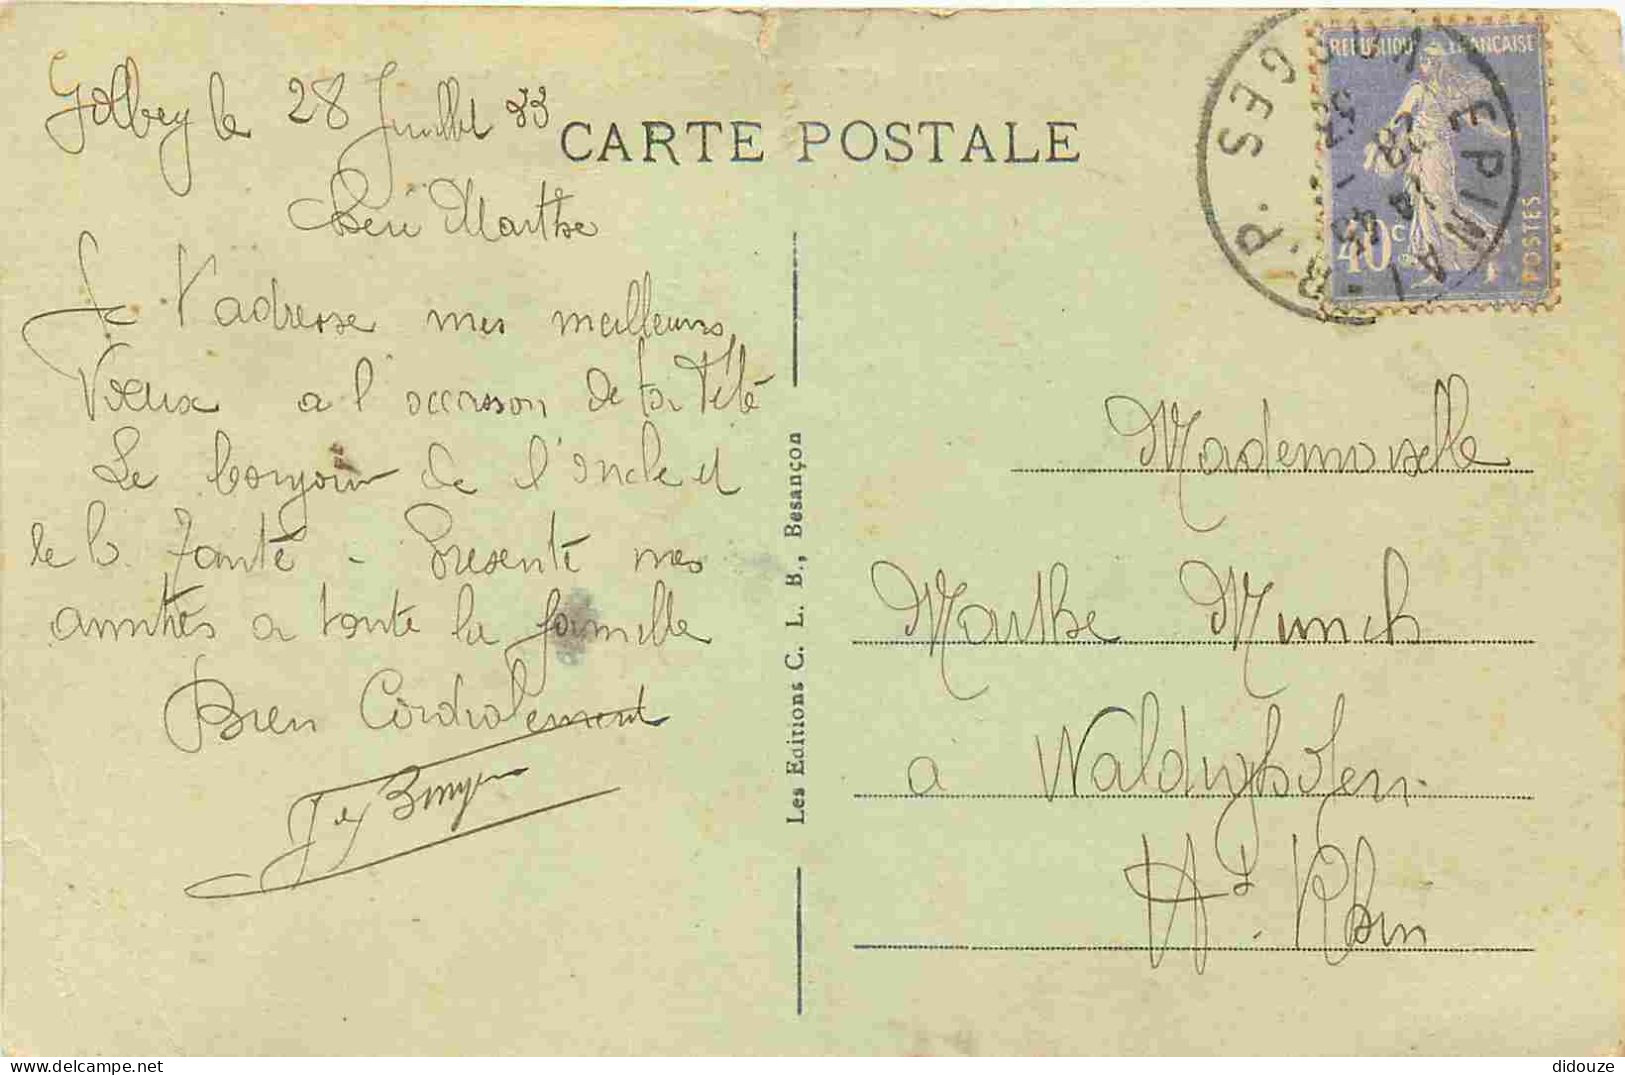 Golbey le 28 Juillet 33
CARTE POSTALE
Chère Marthe
Je t'adresse mes meilleurs
Vœux a l'occasion de ta fête
Le bonjour de l'oncle et
le b. Tante - Presente mes
amitiés a toute la famille
Bien Cordialement
Les Editions C. L. B., Besançon
REPUBLIQUE FRANÇAISE
40 c
POSTES
EPINAL R.P. VOSGES
Mademoiselle
Marthe Munch
a Waldighofen
Ht. Rhin
didouze